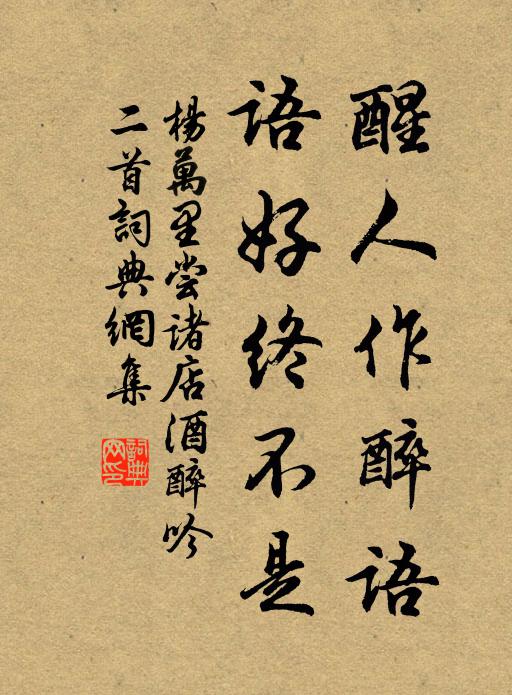 醒人作醉语
语好终不是
杨万里尝诸店酒醉吟
二首词典网集
词典网印